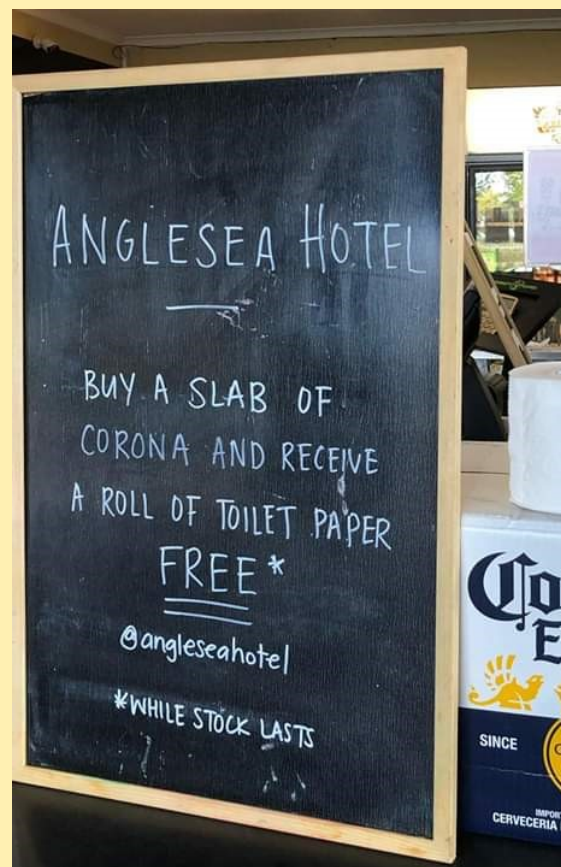 ANGLESEA HOTEL
BUY A SLAB OF
CORONA AND RECEIVE
A ROLL OF TOILET PAPER
FREE*
@angleseahotel
*WHILE STOCK LASTS
Co
E
SINCE
IMPOR
CERVECERIA